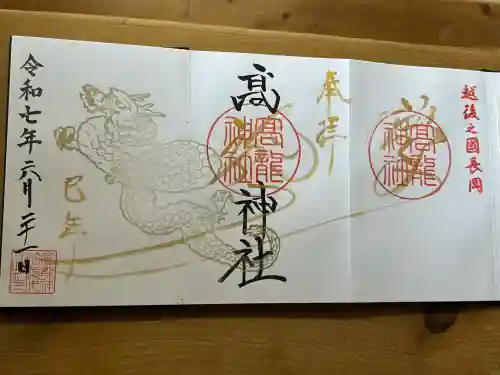 越後之國長岡
奉拝
髙
神社
高龍
神社
高龍
神社
巳年
令和七年六月二十一日